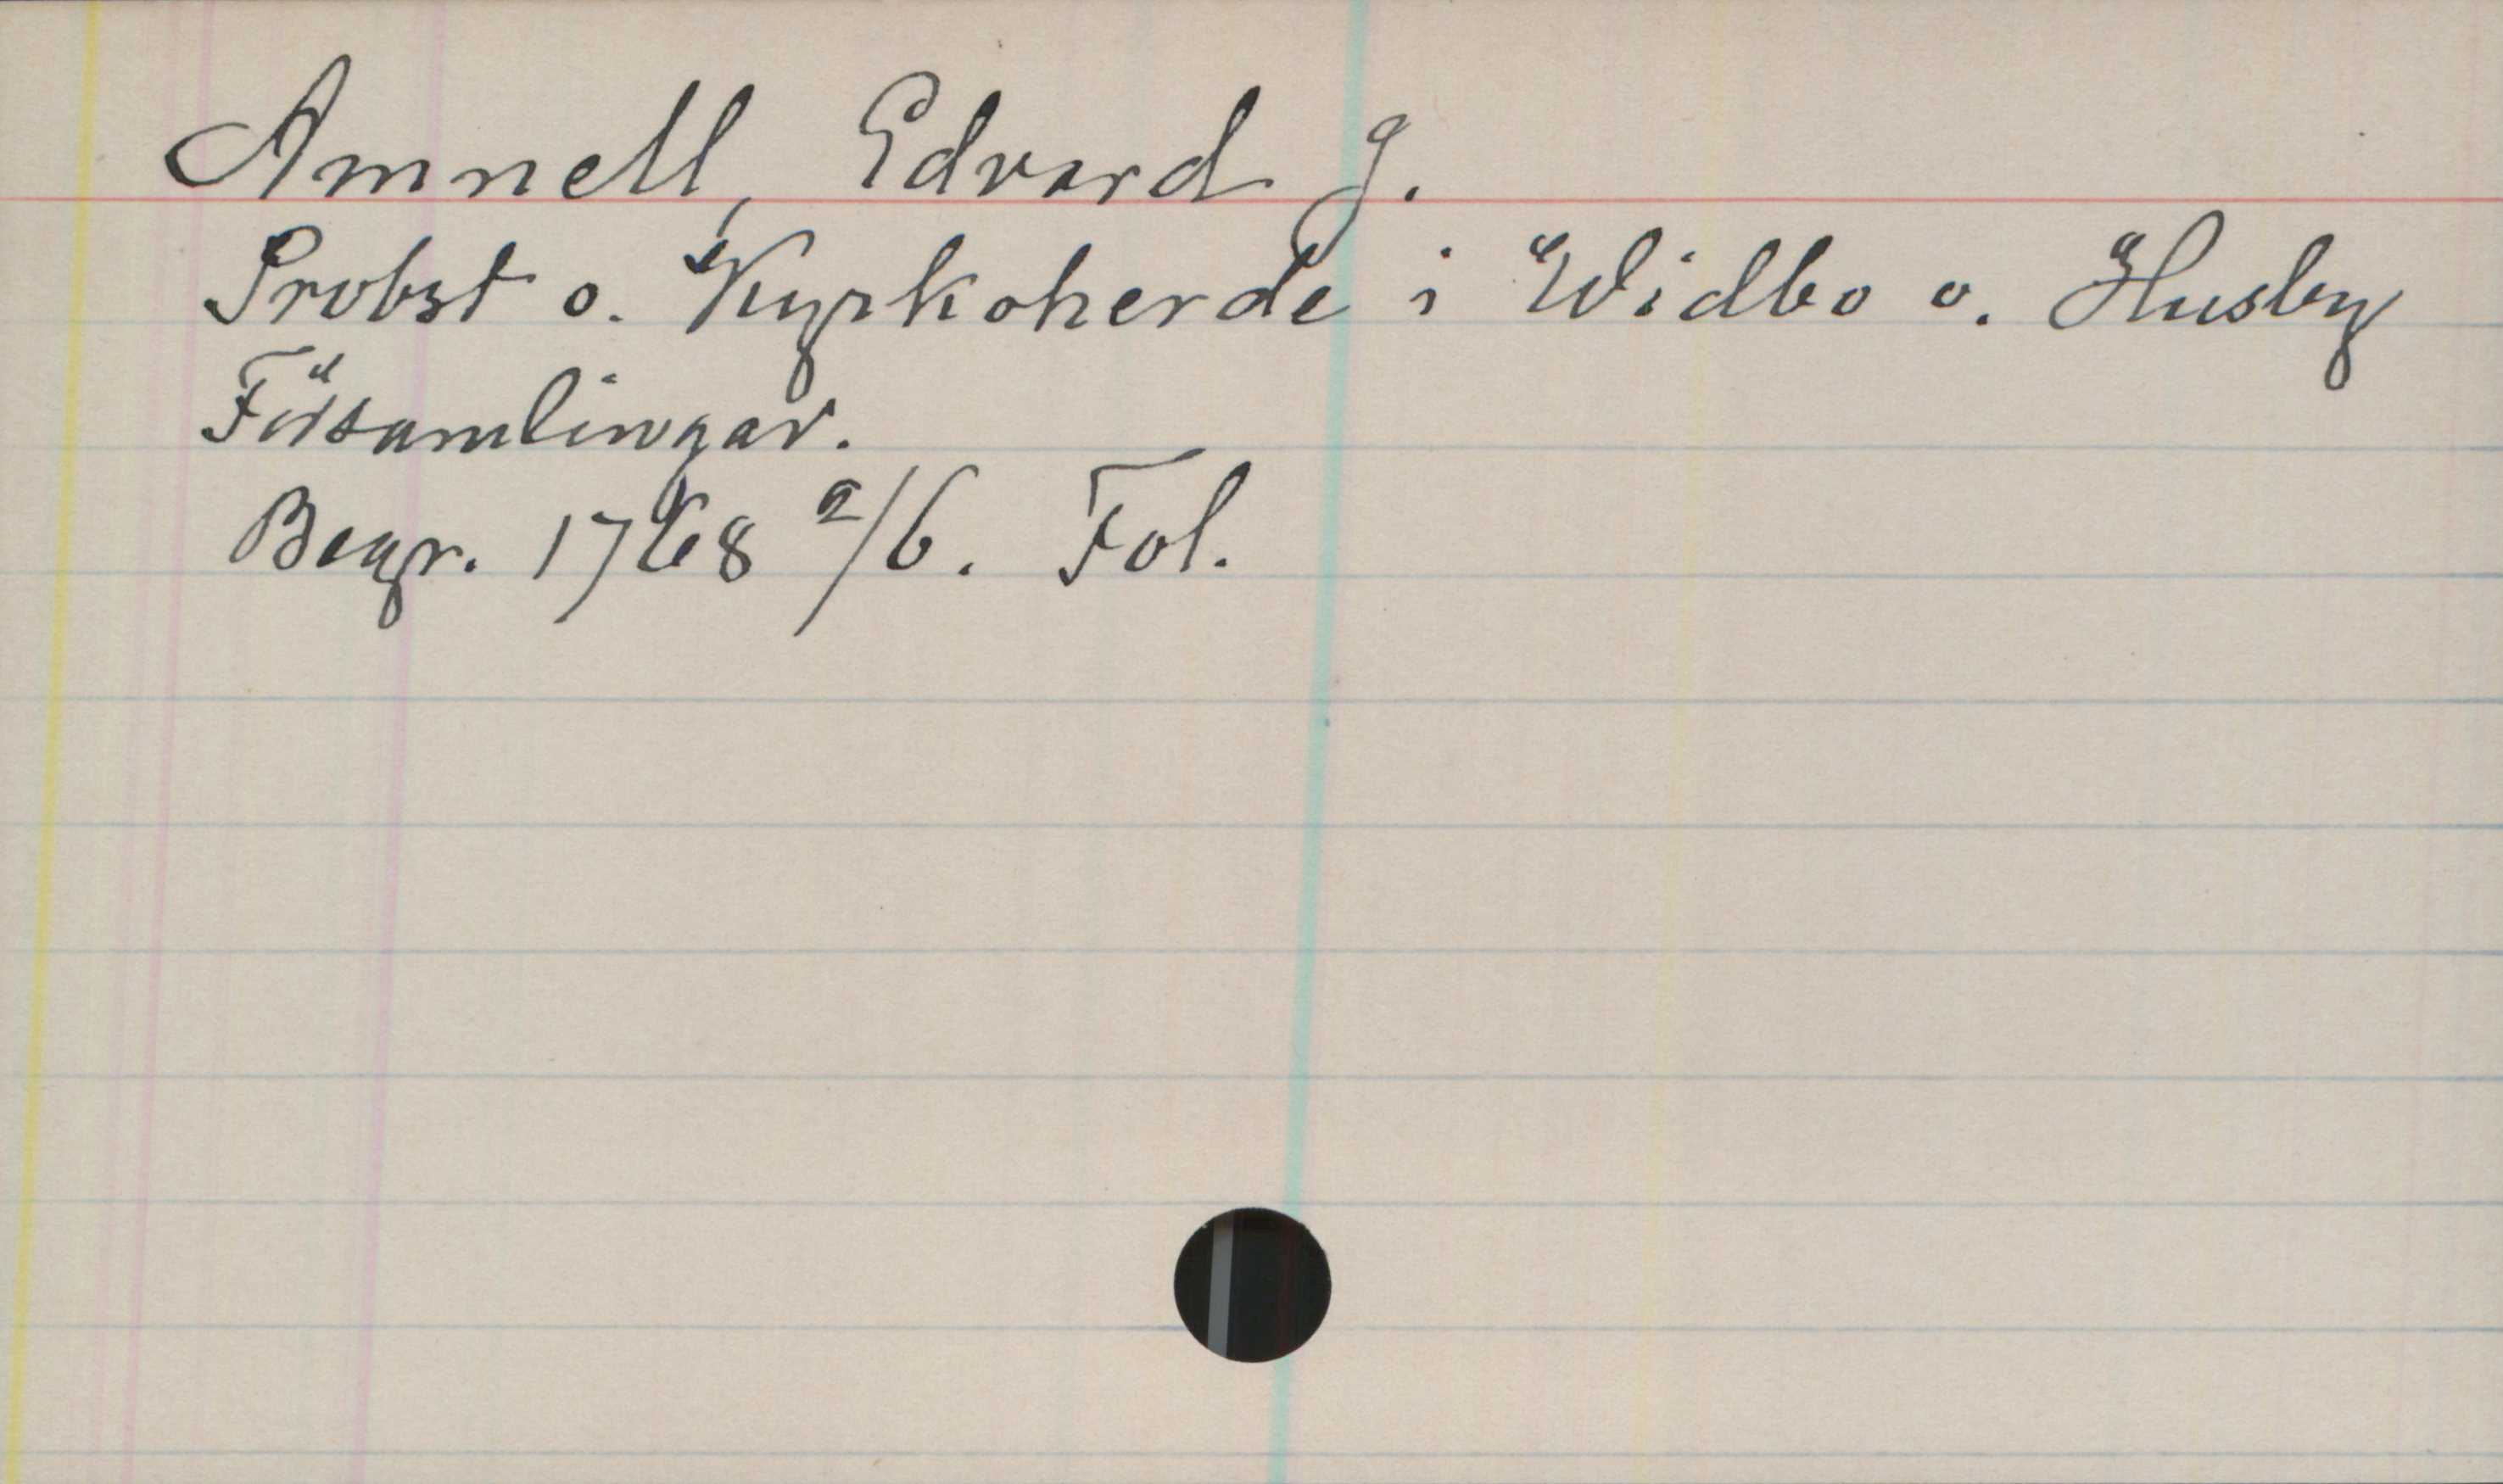 Amnell, Edvard J.
Probst o. Kyrkoherde i Widbo o. Husby
Församlingar.
Begr. 1768 2/6. Fol.